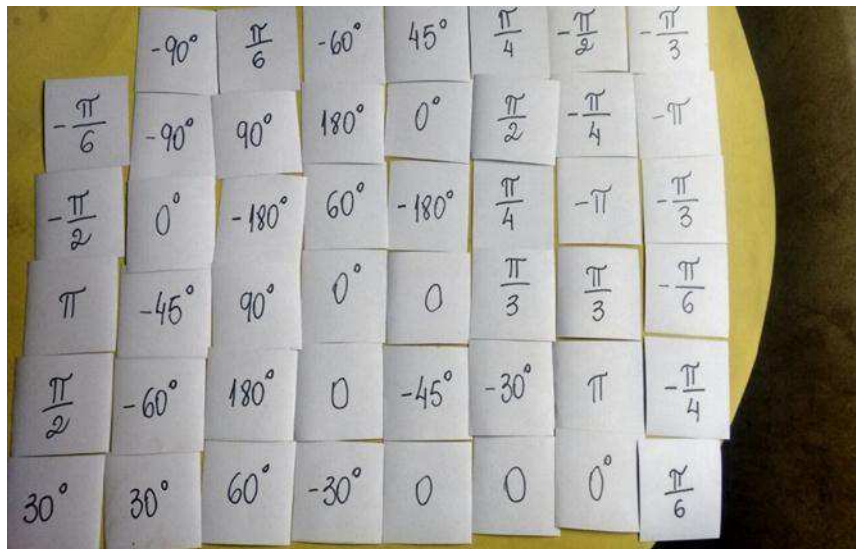 -90° π/6 -60° 45° π/4 -π/2 -π/3
-π/6 -90° 90° 180° 0° π/2 -π/4 -π
-π/2 0° -180° 60° -180° π/4 -π -π/3
π -45° 90° 0° 0 π/3 π/3 -π/6
π/2 -60° 180° 0 -45° -30° π -π/4
30° 30° 60° -30° 0 0 0° π/6